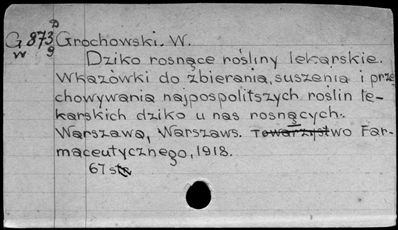 D
G873 Grochowski. W.
w g
Dziko rosnące rośliny lekarskie.
Wkazówki do zbierania, suszenia i prze
chowywania najpospolitszych roślin le-
karskich dziko u nas rosnących.
Warszawa, Warszaws. Towarzystwo Far-
maceutycznego, 1918.
67 str.